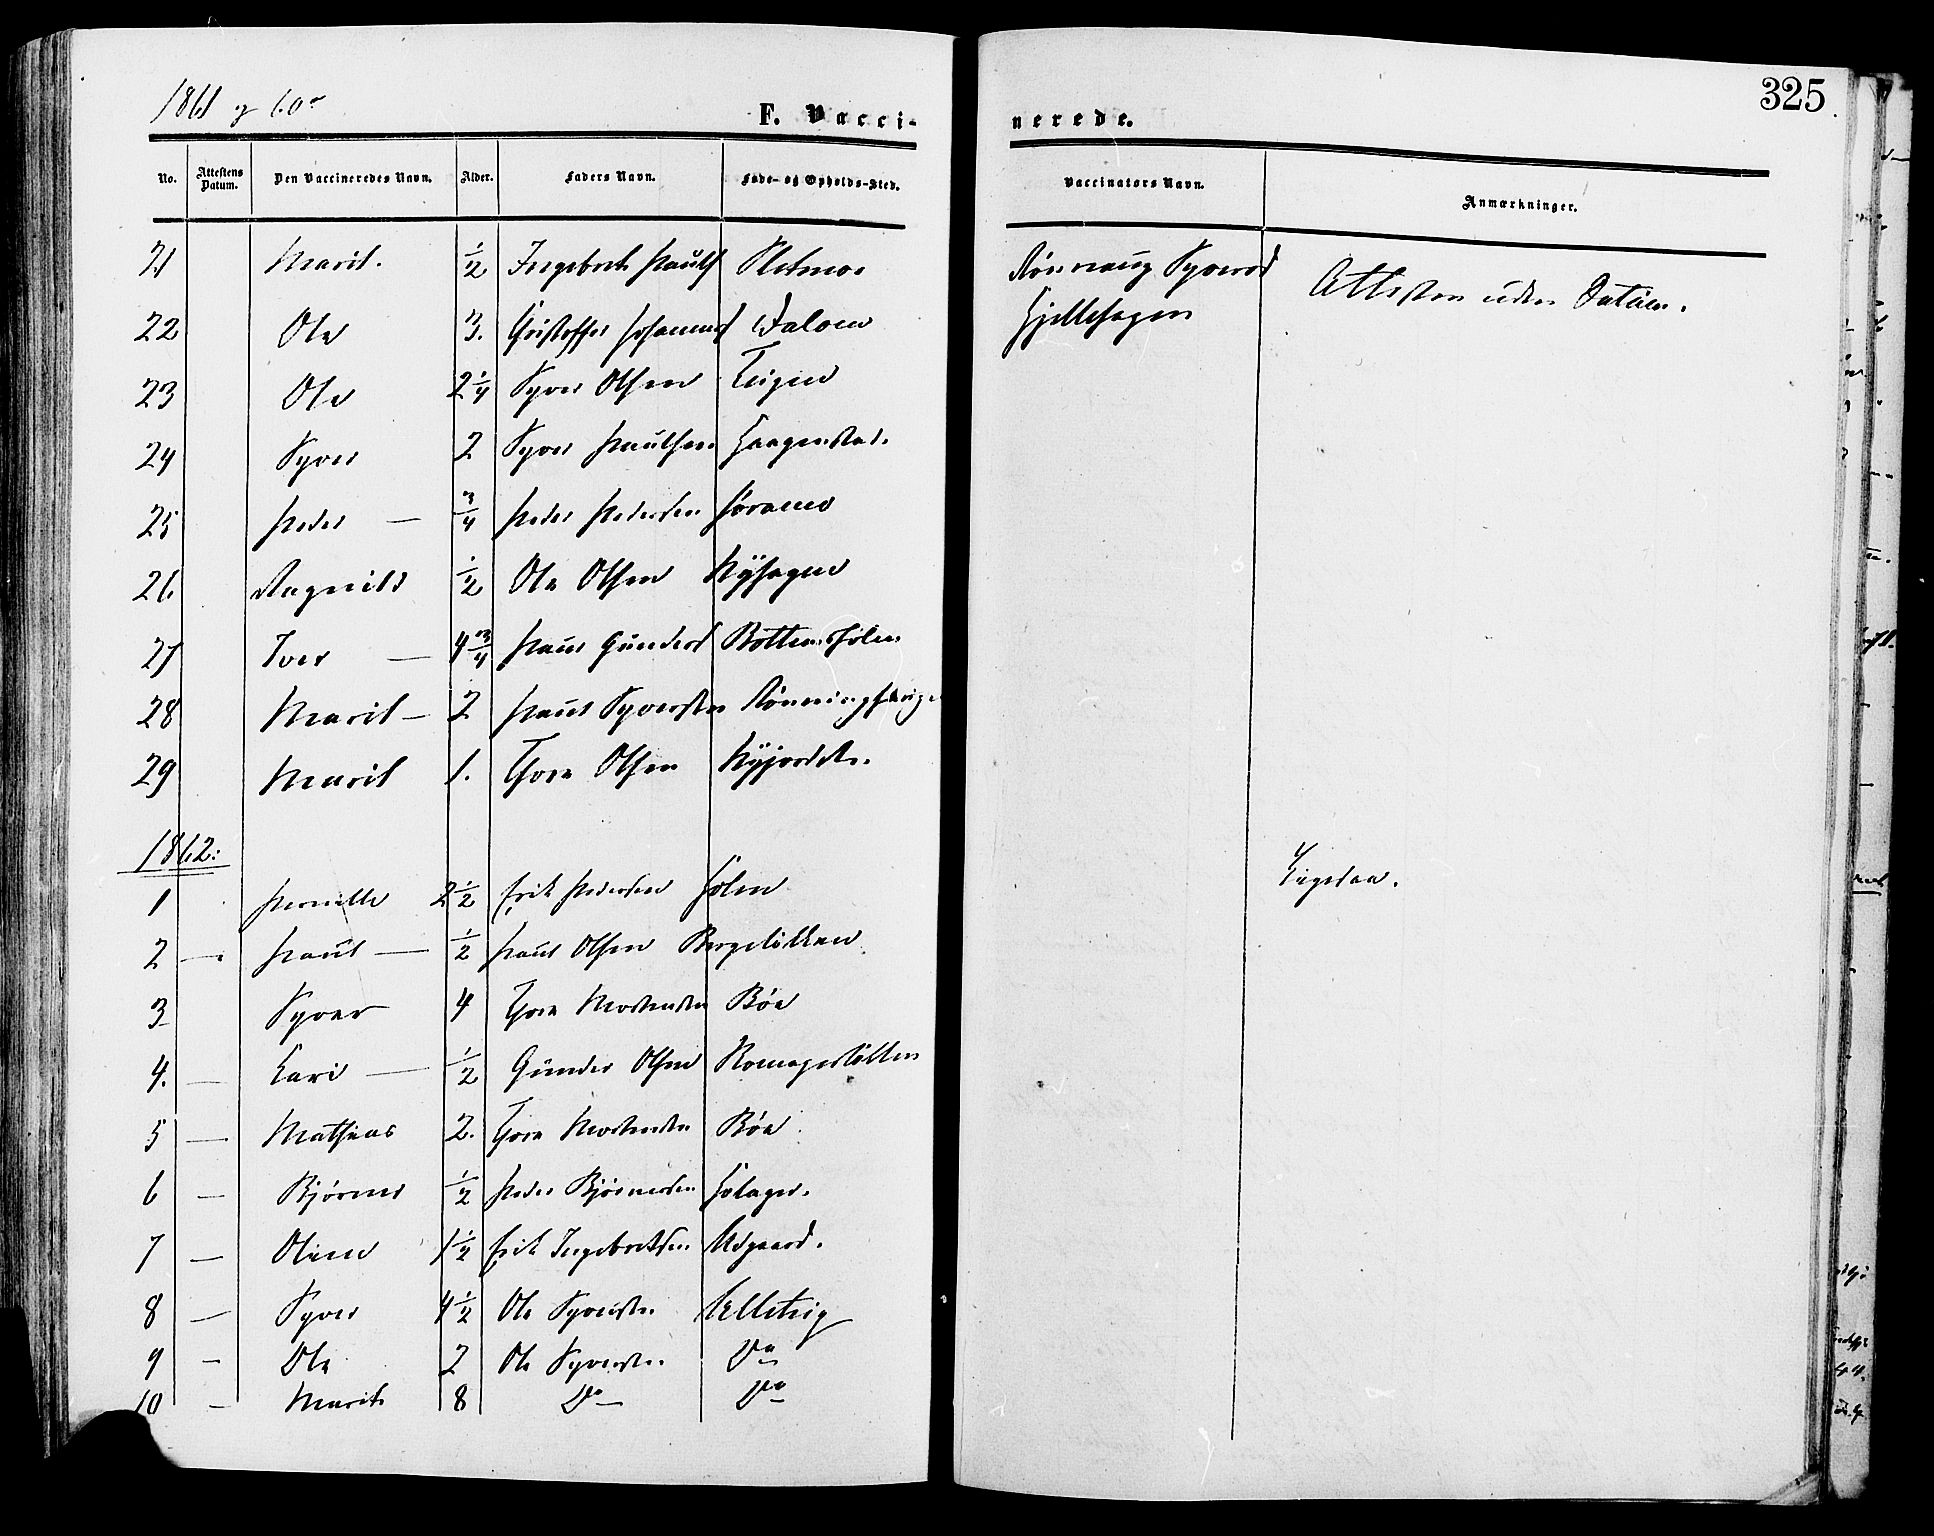 325
1861 og 60
F. Vacci-
nerede.
No. Attestens Datum. Den Vaccineredes Navn. Alder. Faders Navn. Føde- og Opholds-Sted. Vaccinators Navn. Anmærkninger.
21 Marit. 1/2 Ingebret Pauls Rønnaug Syversd Attesten uden Datum.
22 Ole 3. Christoffer Johannes Dalom Gjellehagen
23 Ole 2 1/4 Syver Olsen Teigen
24 Syver 2 Syver Paulsen Haagenstad.
25 Peder — 3/4 Peder Pedersen Søramo
26 Ragnild 1/2 Ole Olsen Nyhagen
27 Iver — 4 3/4 Paul Gunders
28 Marit — 2 Paul Syversen
29 Marit 1. Thore Olsen Nyjordet.
1862:
1 Pernille 2 1/2 Erik Pedersen Holen Ligesaa.
2 — Paul — 1/2 Paul Olsen Bergeløkken
3 Syver 4 Thore Mortensen Bøe
4. — Kari — 1/2 Gunder Olsen
5 — Mathias 2. Thore Mortensen Bøe
6 — Bjørner 1/2 Peder Bjørnersen
7 — Oline 1 1/2 Erik Ingebretsen Udgaard.
8 — Syver 4 1/2 Ole Syversen
9 — Ole 2 Ole Syversen Do
10 — Marit 8 Do — Do